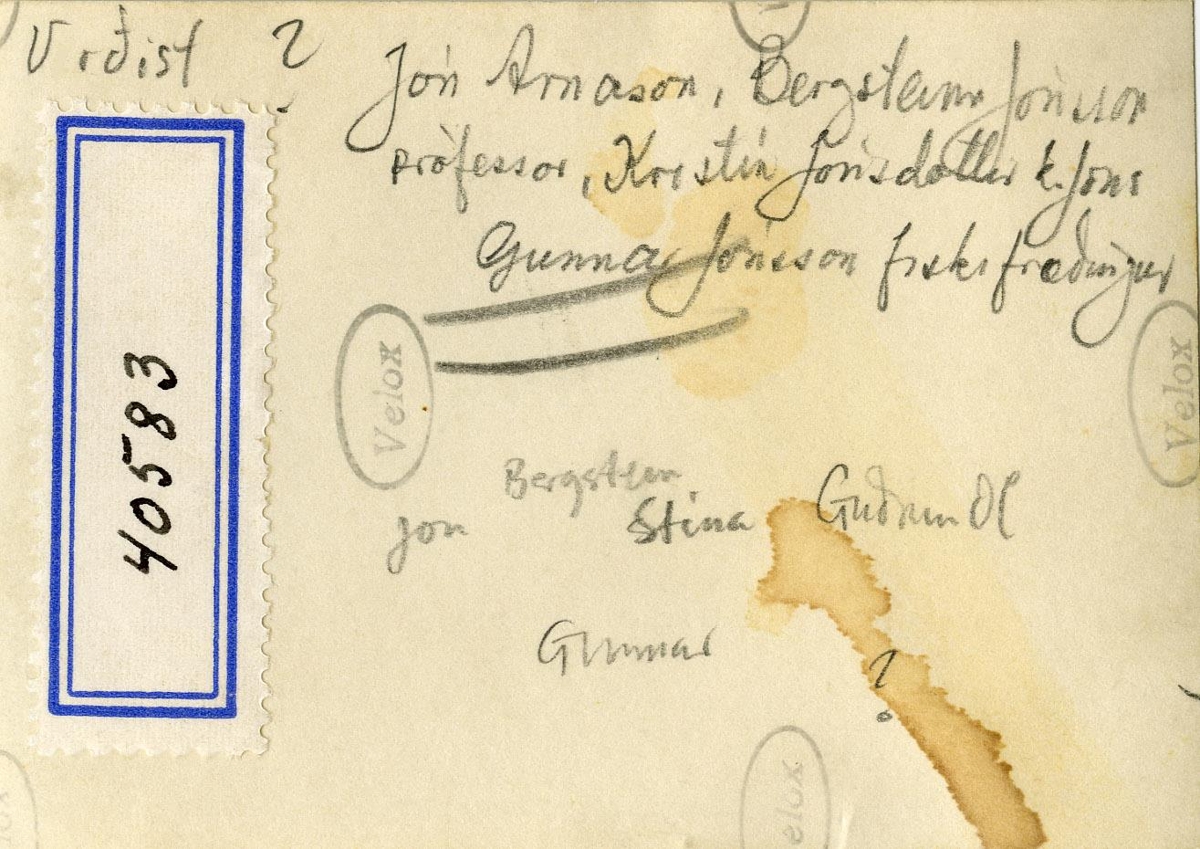 Virðist ?
Jón Arnason, Bergsteinn Jónsson
prófessor, Kristín Jónsdóttir k. Jóns
Gunnar Jónsson fiskifræðingur
Velox
Velox
40583
Bergstein
Jón Stina Guðrún Ól
Gunnar
?
elox